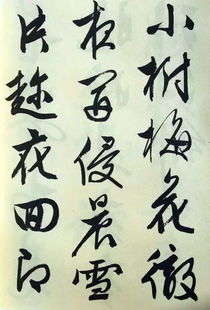 小樹梅花徹
夜開侵晨雪
片趂花回即